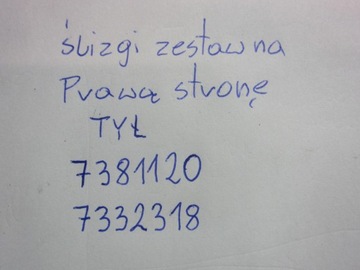 ślizgi zestaw na
Prawą stronę
TYŁ
7381120
7332318